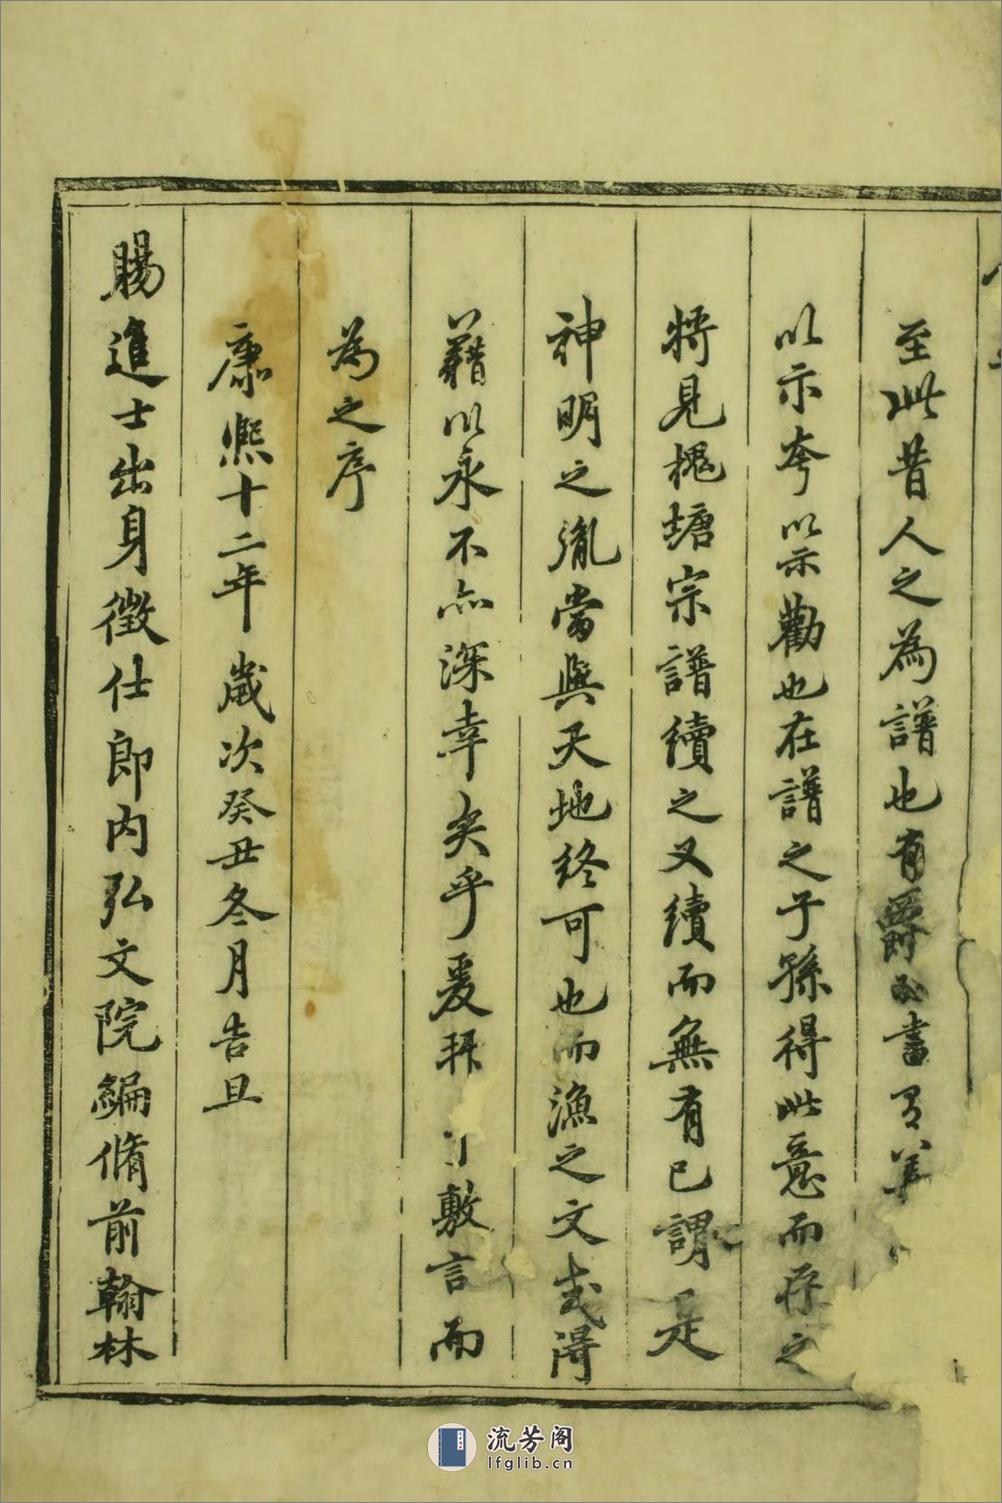 至此昔人之為譜也有爵必書有美
以示夸以示勸也在譜之子孫得此意而存之
將見槐塘宗譜續之又續而無有已謂是
神明之胤當與天地終可也而漁之文或得
藉以永不亦深幸矣乎爰拜手敷言而
為之序
康熙十二年歲次癸丑冬月告旦
賜進士出身徵仕郎內弘文院編脩前翰林
流芳阁
lfglib.cn